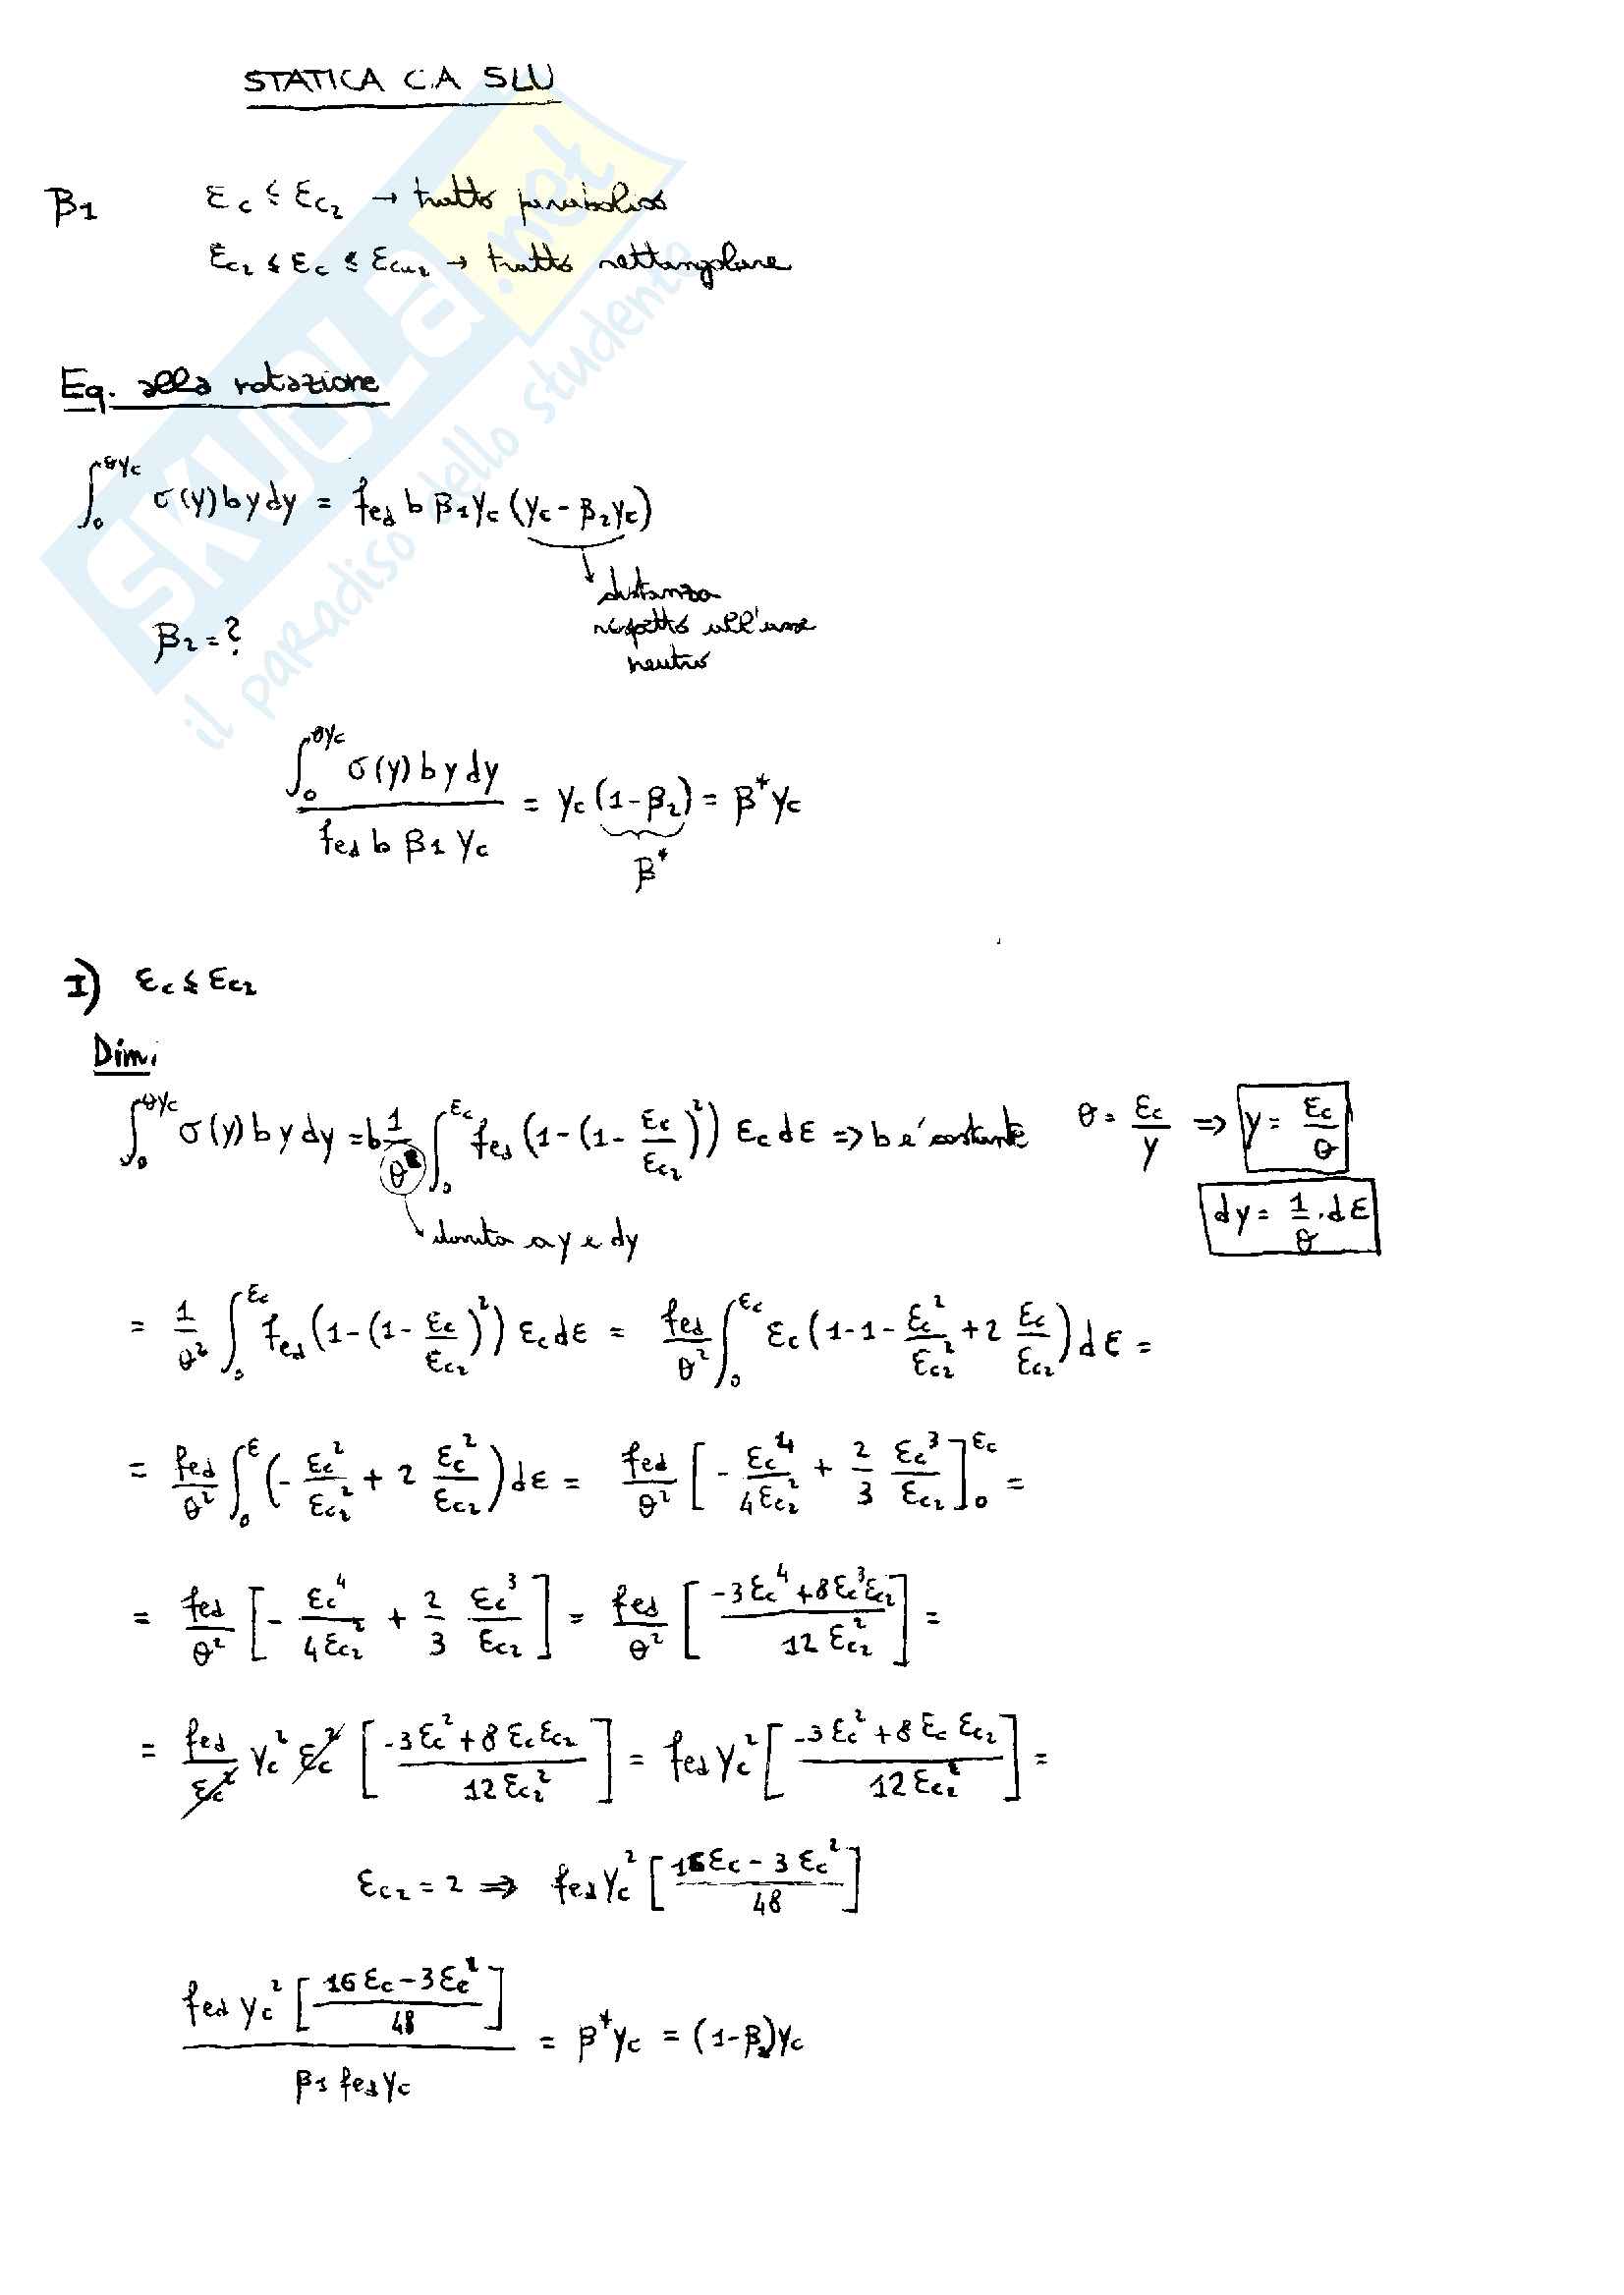 STATICA C.A SLU
β1 εc ≤ εc2 → tratto parabolico
εc2 ≤ εc ≤ εcu2 → tratto rettangolare
Eq. alla rotazione
∫₀^θyc σ(y) b y dy = fcd b β1 yc (yc - β2 yc)
↓ distanza
rispetto all'asse
neutro
β2 = ?
∫₀^θyc σ(y) b y dy / fcd b β1 yc = yc (1-β2) = β* yc
β*
I) εc ≤ εc2
Dim.
∫₀^θyc σ(y) b y dy = b 1/θ² ∫₀^εc fcd (1-(1- εc/εc2)²) εc dε => b é costante θ = εc/y => y = εc/θ
dy = 1/θ · dε
→ dovuto a y e dy
= 1/θ² ∫₀^εc fcd (1-(1- εc/εc2)²) εc dε = fcd/θ² ∫₀^εc εc (1-1- εc²/εc2² + 2 εc/εc2) dε =
= fcd/θ² ∫₀^ε (- εc²/εc2² + 2 εc²/εc2) dε = fcd/θ² [- εc⁴/4εc2² + 2/3 εc³/εc2]₀^εc =
= fcd/θ² [- εc⁴/4εc2² + 2/3 εc³/εc2] = fcd/θ² [-3εc⁴+8εc³εc2 / 12 εc2²] =
= fcd/εc² yc² εc² [-3εc²+8εcεc2 / 12εc2²] = fcd yc² [-3εc²+8εc εc2 / 12εc2²] =
εc2 = 2 => fcd yc² [16εc - 3εc² / 48]
fcd yc² [16εc-3εc² / 48] / β1 fcd yc = β* yc = (1-β2) yc
SKUOLA.net
il paradiso dello studente